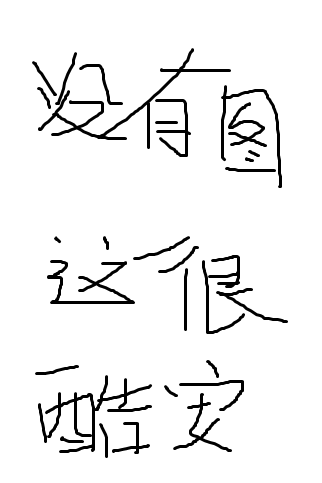 没有图
这很
酷安